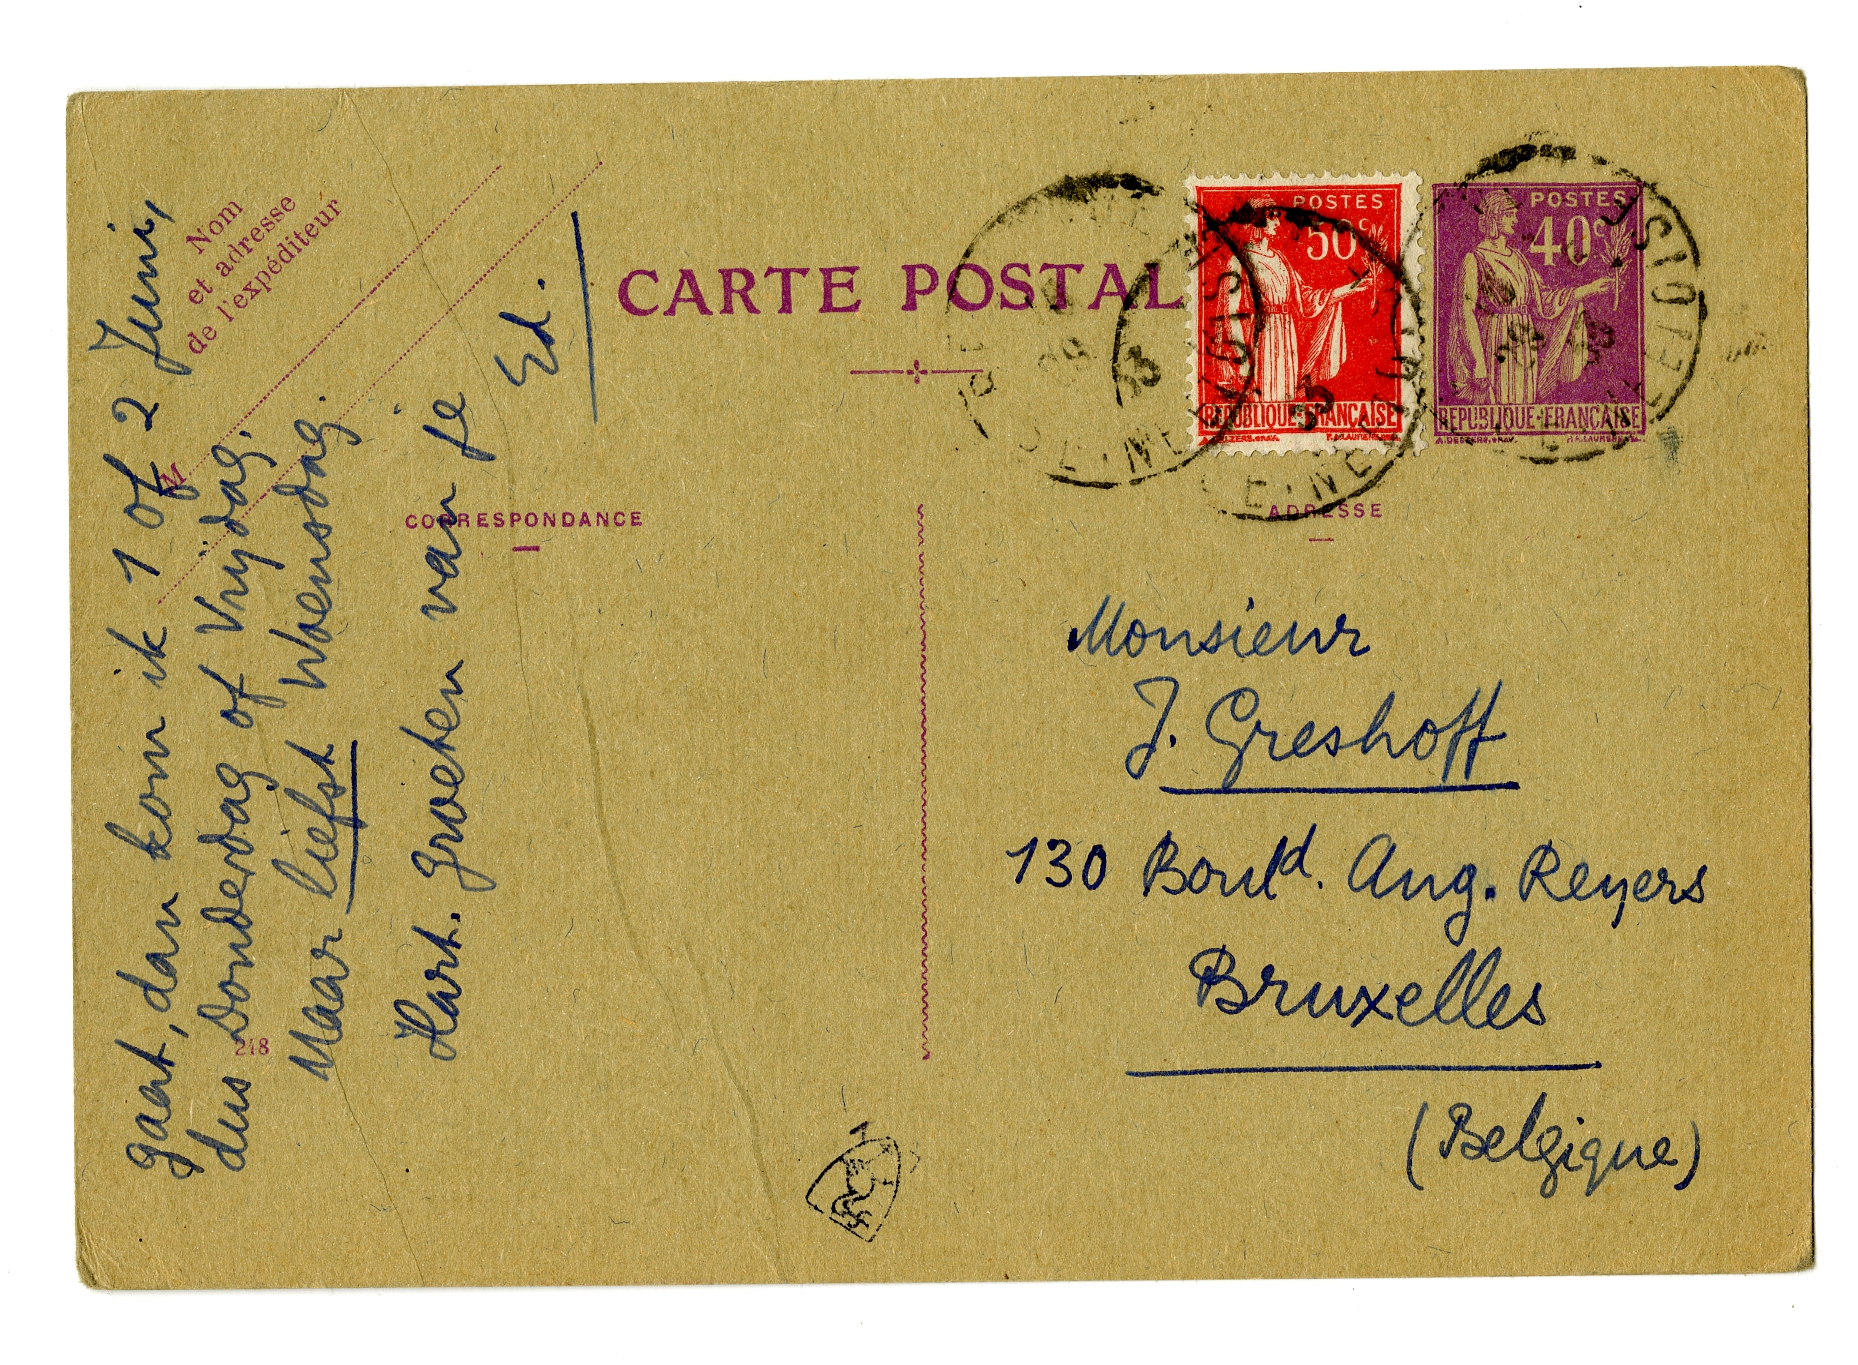 Nom
et adresse
de l'expéditeur
M
CARTE POSTALE
POSTES
50c
REPUBLIQUE FRANÇAISE
POSTES
40c
REPUBLIQUE FRANÇAISE
CORRESPONDANCE
ADRESSE
gaat, dan kom ik 1 of 2 Juni,
dus Donderdag of Vrijdag.
Maar liefst Woensdag.
Hart. groeten van je
Ed.
218
Monsieur
J. Greshoff
130 Bould. Aug. Reyers
Bruxelles
(Belgique)